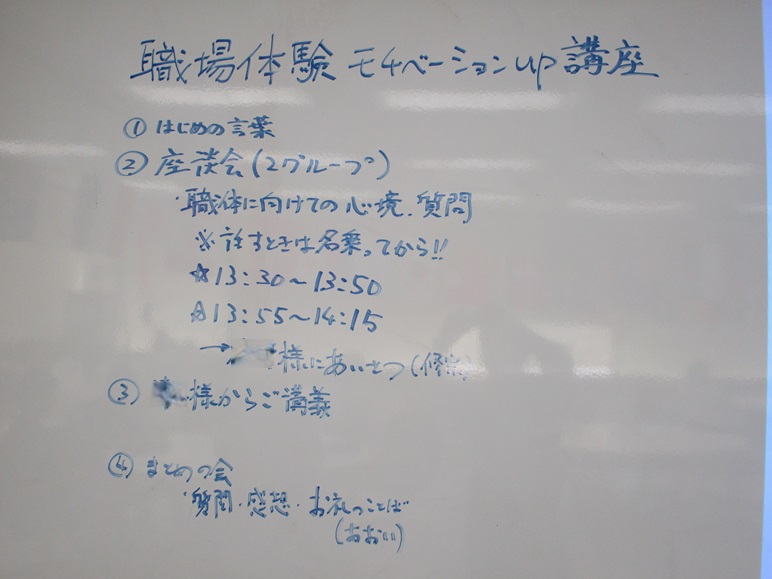 職場体験 モチベーションup講座
① はじめの言葉
② 座談会(2グループ)
・職体に向けての心境.質問
※話すときは名乗ってから!!
☆13:30~13:50
☆13:55~14:15
→ 様にあいさつ
③ 様からご講義
④ まとめの会
・質問・感想・お礼のことば
(おおい)